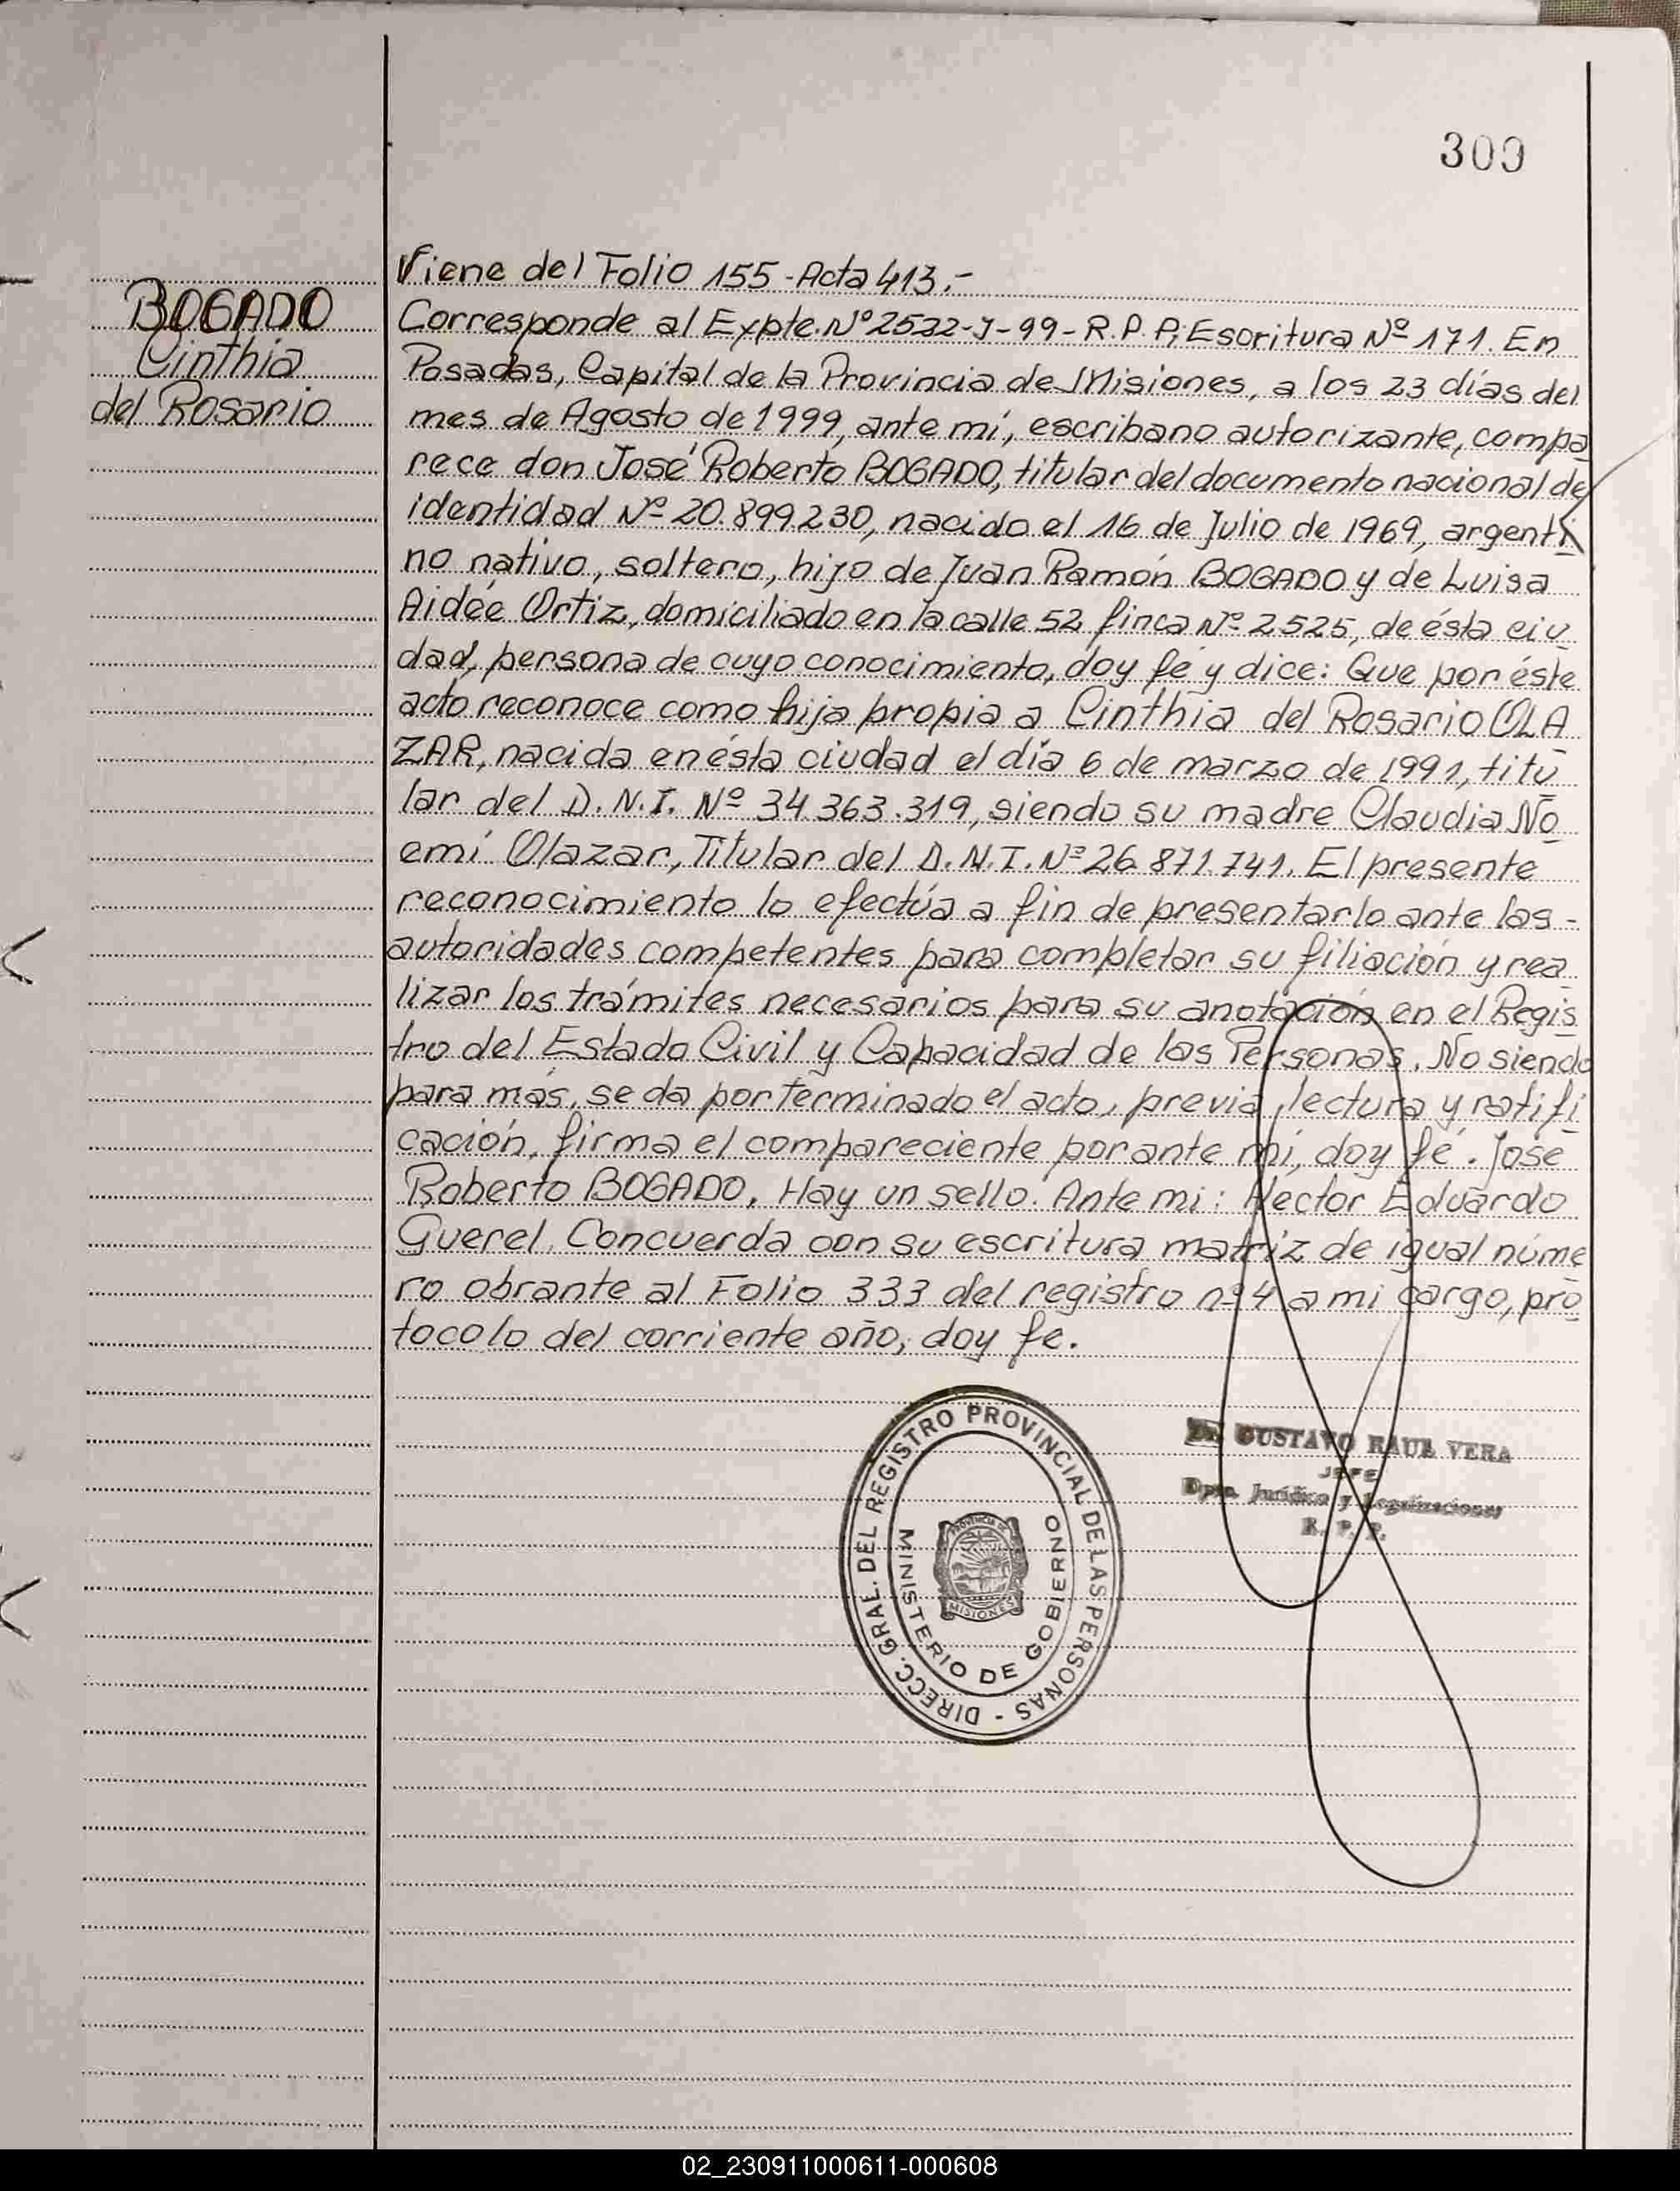 309
Viene del Folio 155-Acta 413.-
BOGADO
Cinthia
del Rosario
Corresponde al Expte. Nº 2522-J-99-R.P.P; Escritura Nº 171. En
Posadas, Capital de la Provincia de Misiones, a los 23 días del
mes de Agosto de 1999, ante mí, escribano autorizante, compa
rece don José Roberto BOGADO, titular del documento nacional de
identidad Nº 20.899.230, nacido el 16 de Julio de 1969, argenti
no nativo, soltero, hijo de Juan Ramón BOGADO y de Luisa
Aidée Ortiz, domiciliado en la calle 52 finca Nº 2525, de ésta ciu
dad, persona de cuyo conocimiento, doy fé y dice: Que por éste
acto reconoce como hija propia a Cinthia del Rosario OLA
ZAR, nacida en ésta ciudad el día 6 de marzo de 1991, titu
lar del D.N.I. Nº 34.363.319, siendo su madre Claudia No
emí Olazar, Titular del D.N.I. Nº 26.871.741. El presente
reconocimiento lo efectúa a fin de presentarlo ante las -
autoridades competentes para completar su filiación y rea
lizar los trámites necesarios para su anotación en el Regis
tro del Estado Civil y Capacidad de las Personas. No siendo
para más, se da por terminado el acto, previa lectura y ratifi
cación, firma el compareciente por ante mí, doy fé. José
Roberto BOGADO, Hay un sello. Ante mi: Hector Eduardo
Querel. Concuerda con su escritura matriz de igual núme
ro obrante al Folio 333 del registro nº 4 a mi cargo, pro
tocolo del corriente año, doy fe.
DIRECC. GRAL. DEL REGISTRO PROVINCIAL DE LAS PERSONAS -
MINISTERIO DE GOBIERNO
PROVINCIA DE
MISIONES
Dr. GUSTAVO RAUL VERA
JEFE
Dpto. Jurídico y Legalizaciones
R. P. P.
02_230911000611-000608